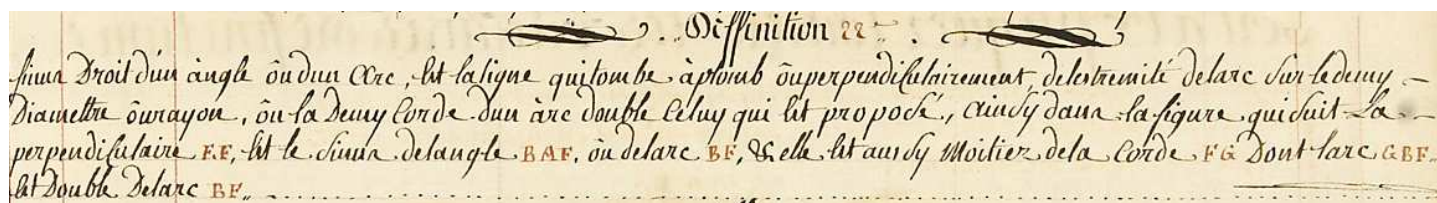 Diffinition 22me.
sinus Droit d'un àngle ôu d'un Arc, Est la ligne qui tombe à plomb ôu perpendiculairement, de lestremité de larc sur le demy
Diamettre ôu rayon, ôu la Demy Corde d'un àrc double Celuy qui Est proposé, ainsy dans la figure qui suit La
perpendiculaire F.F, Est le sinus de langle BAF, ôu de larc BF, & elle Est aussy Moitiez de la Corde FG Dont larc GBF
Est Double De larc BF